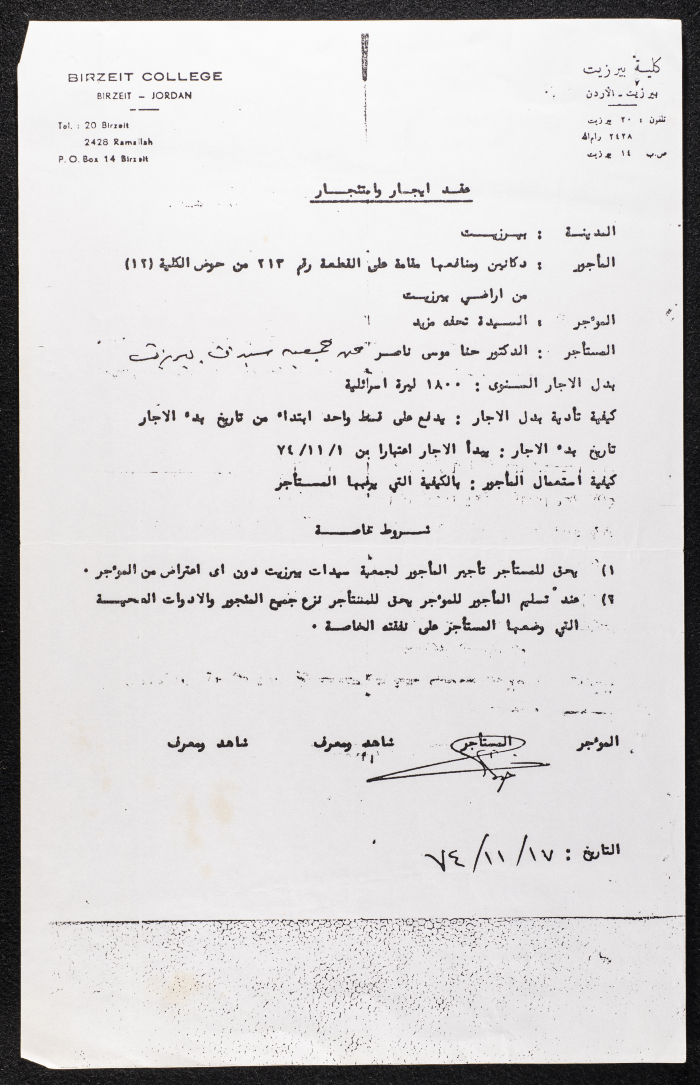 BIRZEIT COLLEGE
BIRZEIT – JORDAN
Tel. : 20 Birzeit
2428 Ramallah
P. O. Box 14 Birzeit
كلية بيرزيت
بيرزيت - الأردن
تلفون : ٢٠ بيرزيت
٢٤٢٨ رام الله
ص.ب ١٤ بيرزيت
عقد ايجار واستئجار
المدينة : بيرزيت
المأجور : دكانين ومنافعها مقامة على القطعة رقم ٢١٣ من حوض الكلية (١٢)
من اراضي بيرزيت
الموجر : السيدة تحفه مزيد
المستأجر : الدكتور حنا موسى ناصر عن جمعية سيدات بيرزيت
بدل الاجار السنوى : ١٨٠٠ ليرة اسرائلية
كيفية تأدية بدل الاجار : يدفع على قسط واحد ابتداء من تاريخ بدء الاجار
تاريخ بدء الاجار : يبدأ الاجار اعتبارا من ٧٤/١١/١
كيفية أستعمال المأجور : بالكيفية التي يرغبها المستأجر
شروط خاصة
١) يحق للمستأجر تأجير المأجور لجمعية سيدات بيرزيت دون اى اعتراض من الموءجر .
٢) عند تسليم المأجور للموءجر يحق للمستأجر نزع جميع الطجور والادوات الصحية
التي وضعها المستأجر على نفقته الخاصة .
الموءجر المستأجر شاهد ومعرف شاهد ومعرف
التاريخ : ٧٤/١١/١٧